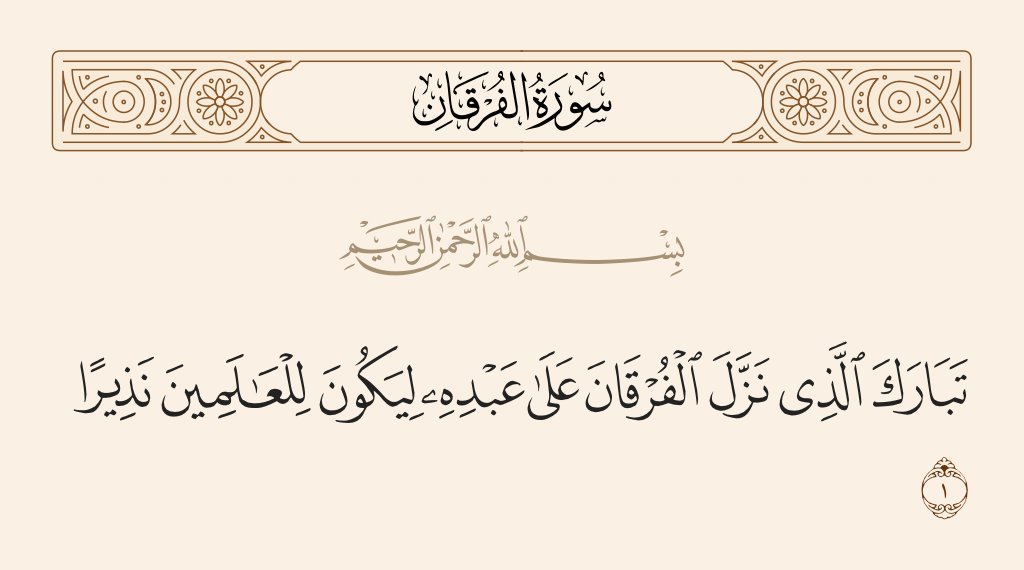 سُورَةُ الفُرْقَانِ
بِسْمِ ٱللَّهِ ٱلرَّحْمَٰنِ ٱلرَّحِيمِ
تَبَارَكَ ٱلَّذِى نَزَّلَ ٱلْفُرْقَانَ عَلَىٰ عَبْدِهِۦ لِيَكُونَ لِلْعَـٰلَمِينَ نَذِيرًا
١